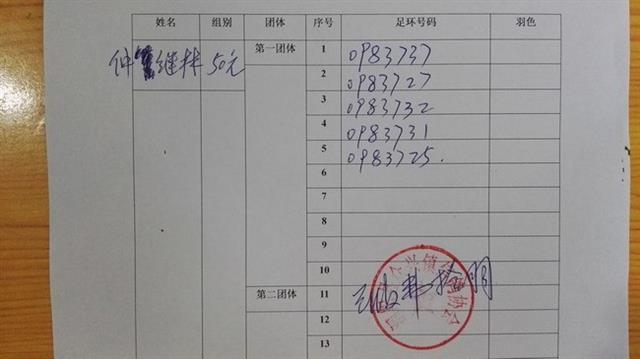 姓名 组别 团体 序号 足环号码 羽色
仲继林 50元 第一团体 1 0983737
2 0983727
3 0983732
4 0983731
5 0983725.
6
7
8
9
10
第二团体 11
12
13